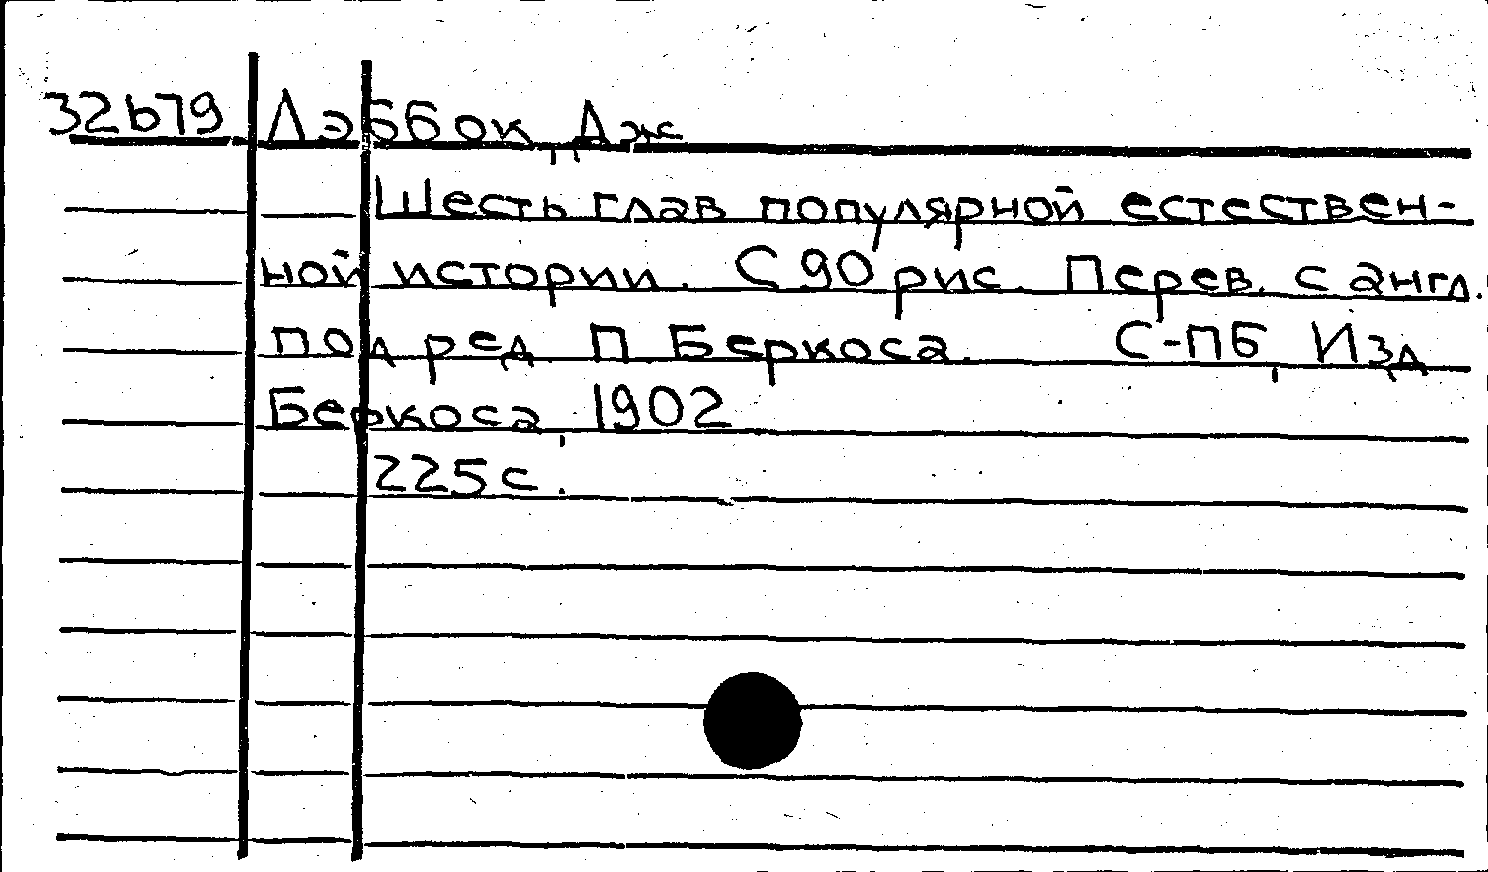 32b79 Лэббок, Дж
Шесть глав популярной естествен-
ной истории. С 90 рис. Перев. с англ.
под ред. П Беркоса. С-ПБ, Изд
Беркоса, 1902
225 с.